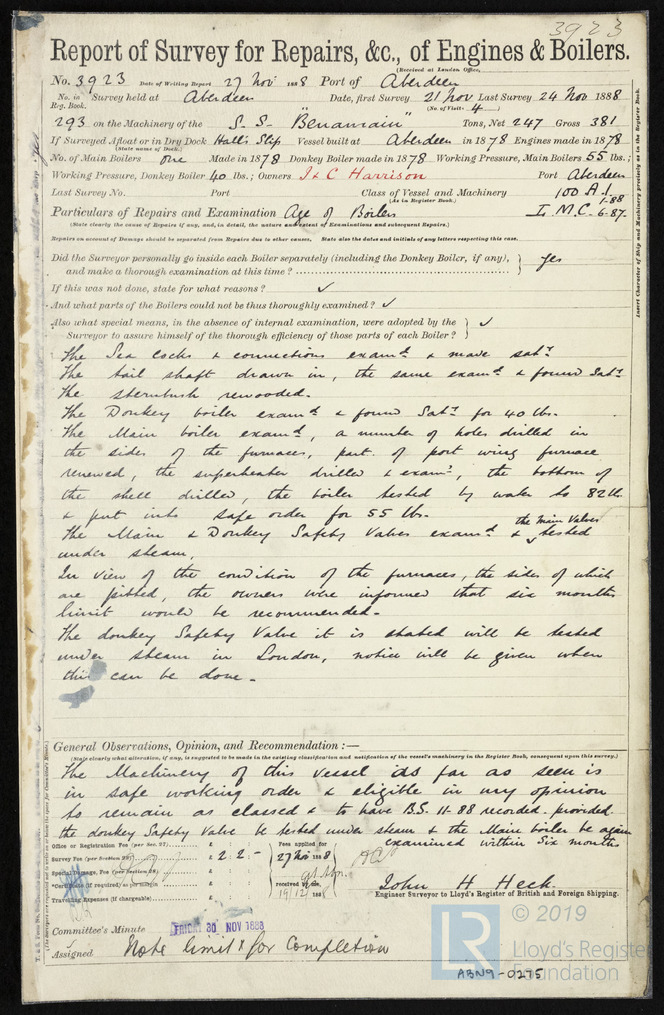 3923
Report of Survey for Repairs, &c., of Engines & Boilers.
(Received at London Office,
No. 3923 Date of Writing Report 27 Nov 1888 Port of Aberdeen
No. in Reg. Book. Survey held at Aberdeen Date, first Survey 21 Nov Last Survey 24 Nov 1888
(No. of Visits 4)
293 on the Machinery of the S.S. "Benamain" Tons, Net 247 Gross 381
If Surveyed Afloat or in Dry Dock Hall's Slip Vessel built at Aberdeen in 1878 Engines made in 1878
(State name of Dock.)
No. of Main Boilers one Made in 1878 Donkey Boiler made in 1878 Working Pressure, Main Boilers 55 lbs.;
Working Pressure, Donkey Boiler 40 lbs.; Owners J & C Harrison Port Aberdeen
Last Survey No. Port Class of Vessel and Machinery 100 A.1. 1-88
(As in Register Book.)
Particulars of Repairs and Examination Age of Boilers L.M.C. 6-87.
(State clearly the cause of Repairs if any, and, in detail, the nature and extent of Examinations and subsequent Repairs.)
Repairs on account of Damage should be separated from Repairs due to other causes. State also the dates and initials of any letters respecting this case.
Did the Surveyor personally go inside each Boiler separately (including the Donkey Boiler, if any), and make a thorough examination at this time? yes
If this was not done, state for what reasons? ✓
And what parts of the Boilers could not be thus thoroughly examined? ✓
Also what special means, in the absence of internal examination, were adopted by the Surveyor to assure himself of the thorough efficiency of those parts of each Boiler? ✓
The Sea Cocks & connections examd & made saty
The tail shaft drawn in, the same examd & found Saty
The sternbush rewooded.
The Donkey boiler examd & found Saty for 40 lbs.
The Main boiler examd, a number of holes drilled in
the sides of the furnaces, part of port wing furnace
renewed, the superheater drilled & examd, the bottom of
the shell drilled, the boiler tested by water to 82 lb
& put into safe order for 55 lbs.
The Main & Donkey Safety Valves examd & the Main Valves tested
under steam.
In view of the condition of the furnaces, the sides of which
are pitted, the owners were informed that six months
limit would be recommended.
The donkey Safety Valve it is stated will be tested
under steam in London, notice will be given when
this can be done.
General Observations, Opinion, and Recommendation:—
(State clearly what alteration, if any, is suggested to be made in the existing classification and notification of the vessel's machinery in the Register Book, consequent upon this survey.)
The Machinery of this vessel as far as seen is
in safe working order & eligible in my opinion
to remain as classed & to have B.S. 11-88 recorded provided
the donkey Safety Valve be tested under steam & the Main boiler be again
examined within Six months
Office or Registration Fee (per Sec. 27) £ : : Fees applied for
Survey Fee (per Section 28) £ 2 : 2 : - 27 Nov 1888
Special Damage Fee (per Section 28)
*Certificate (if required) as per margin received by me,
Travelling Expenses (if chargeable) 19/12/188
John H. Heck
Engineer Surveyor to Lloyd's Register of British and Foreign Shipping.
Committee's Minute FRIDAY 30 NOV 1888
Assigned Note limit & for Completion
Insert Character of Ship and Machinery precisely as in the Register Book.
LR © 2019
Lloyd's Register
Foundation
ABN9-0275